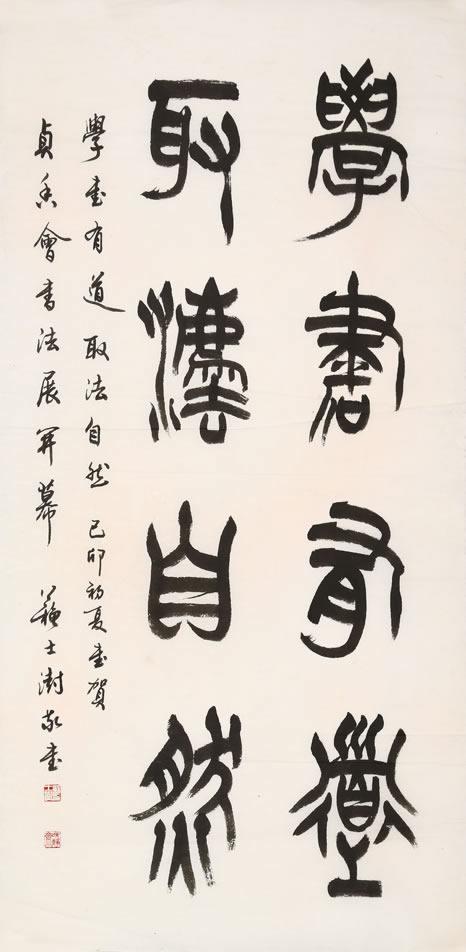 學書有道
取灋自然
學書有道取法自然 己卯初夏書賀
貞香會書法展開幕 蘇士澍敬書